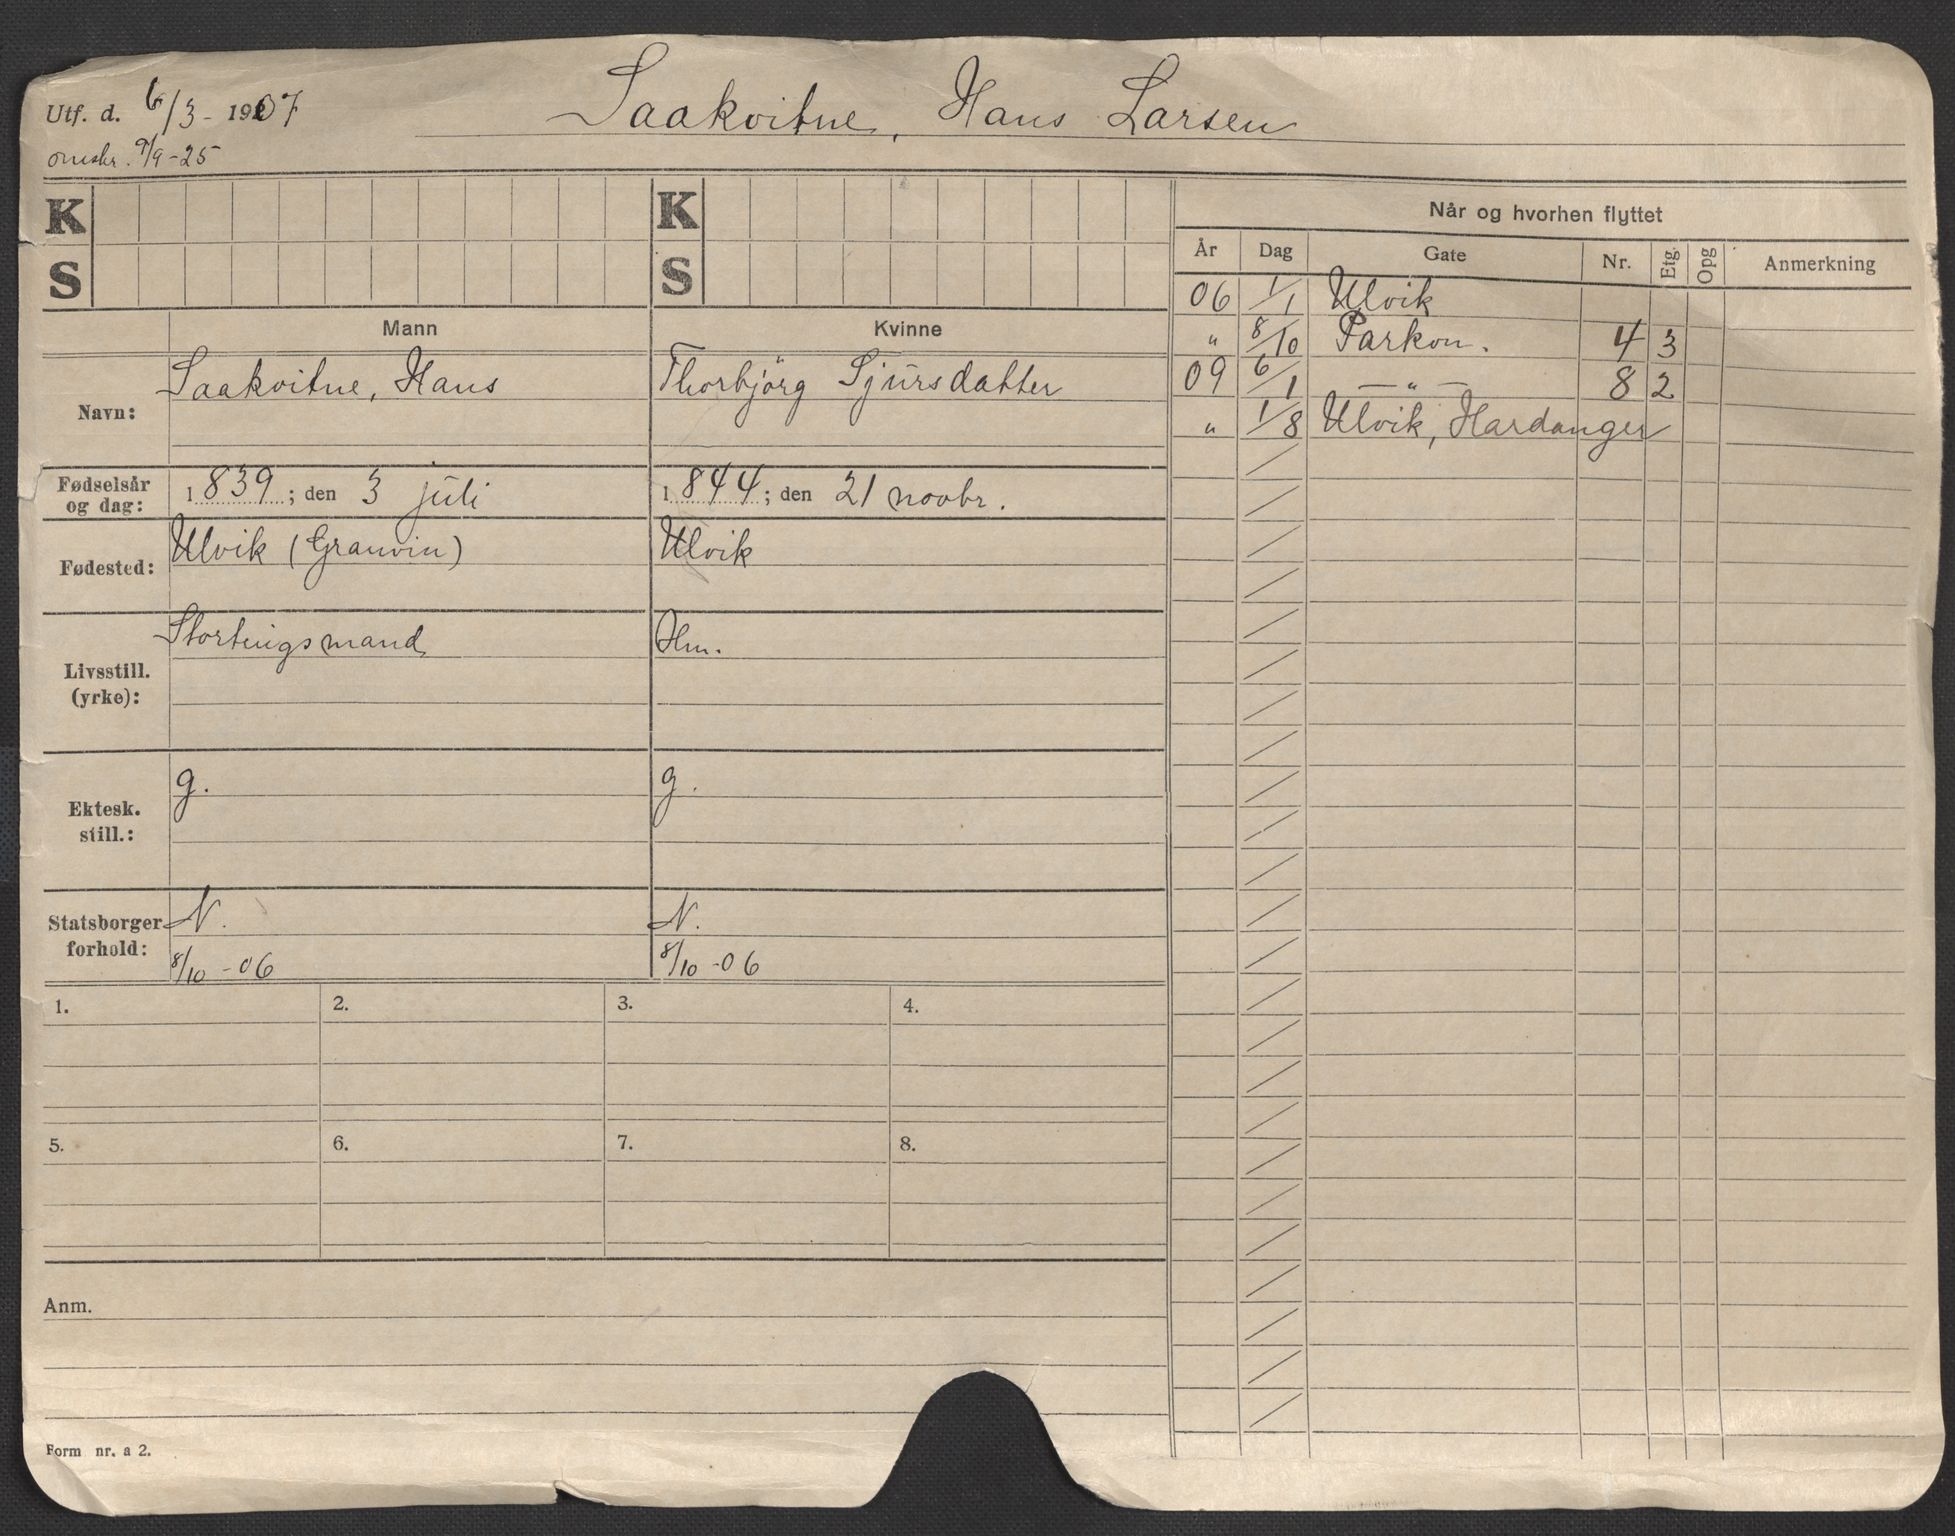 Utf. d. 6/3 - 1907
Saakvitne, Hans Larsen
omskr. 9/9-25
K K
S S
Mann Kvinne
Navn: Saakvitne, Hans Thorbjörg Sjursdatter
Fødselsår og dag: 1839; den 3 juli 1844; den 21 novbr.
Fødested: Ulvik (Granvin) Ulvik
Livsstill. (yrke): Stortingsmand Hm.
Ektesk. still.: g. g.
Statsborger forhold: N. N.
8/10 -06 8/10 -06
1. 2. 3. 4.
5. 6. 7. 8.
Anm.
Form nr. a 2.
Når og hvorhen flyttet
År Dag Gate Nr. Etg. Opg Anmerkning
06 1/1 Ulvik
" 8/10 Parkvn. 4 3
09 6/1 — " — 8 2
" 1/8 Ulvik, Hardanger